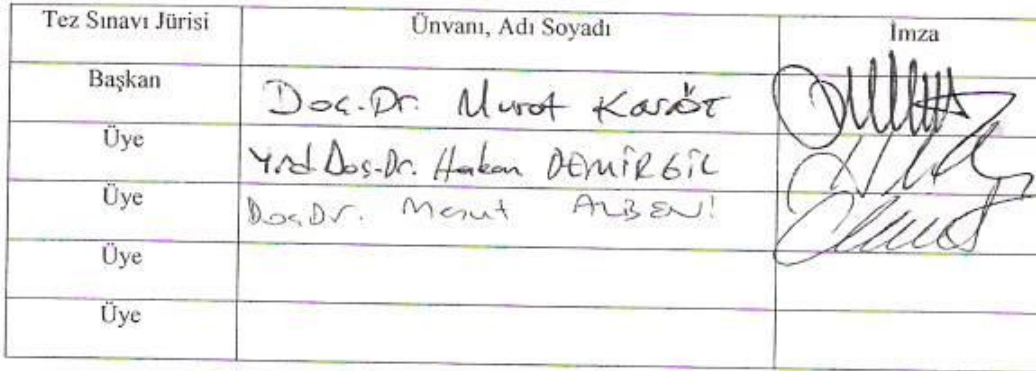 Tez Sınavı Jürisi Ünvanı, Adı Soyadı İmza
Başkan Doç.Dr. Murat Karaöz
Üye Yrd.Doç.Dr. Hakan DEMİRGİL
Üye Doç.Dr. Mesut ALBENİ
Üye
Üye